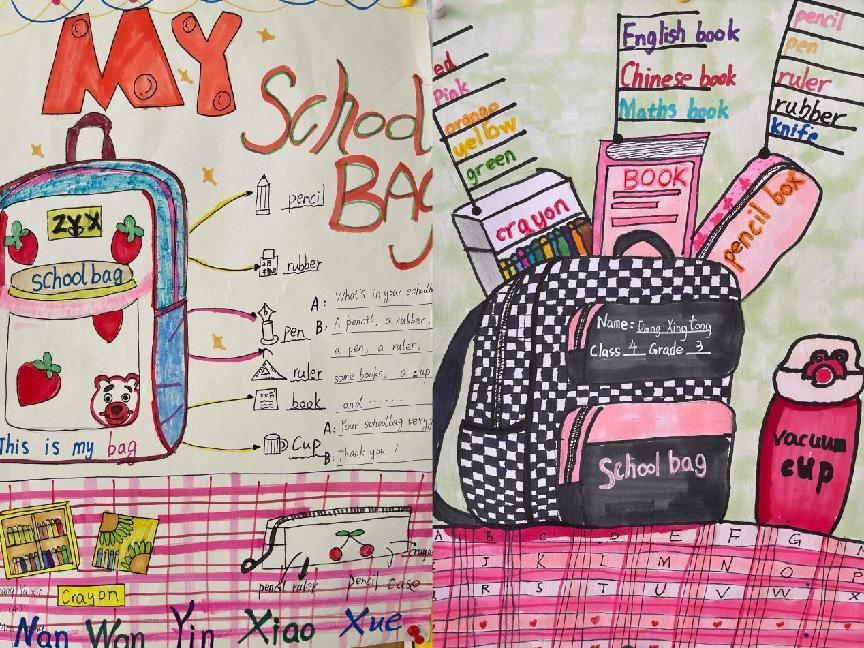 MY
School
BAG
ZYX
schoolbag
This is my bag
pencil
rubber
pen
ruler
book
Cup
A: What's in your
B: A pencil, a rubber,
a pen, a ruler,
some books, a cup
and ......
A: Your schoolbag very
B: Thank you!
pencil ruler
pencil case
Crayon
Nan Wan Yin Xiao Xue
Pink
orange
yellow
green
English book
Chinese book
Maths book
pencil
pen
ruler
rubber
knife
crayon
BOOK
pencil box
Name:
Class 4 Grade 3
School bag
vacuum
cup
A B C D E F G
J K L M N O P
R S T U V W X